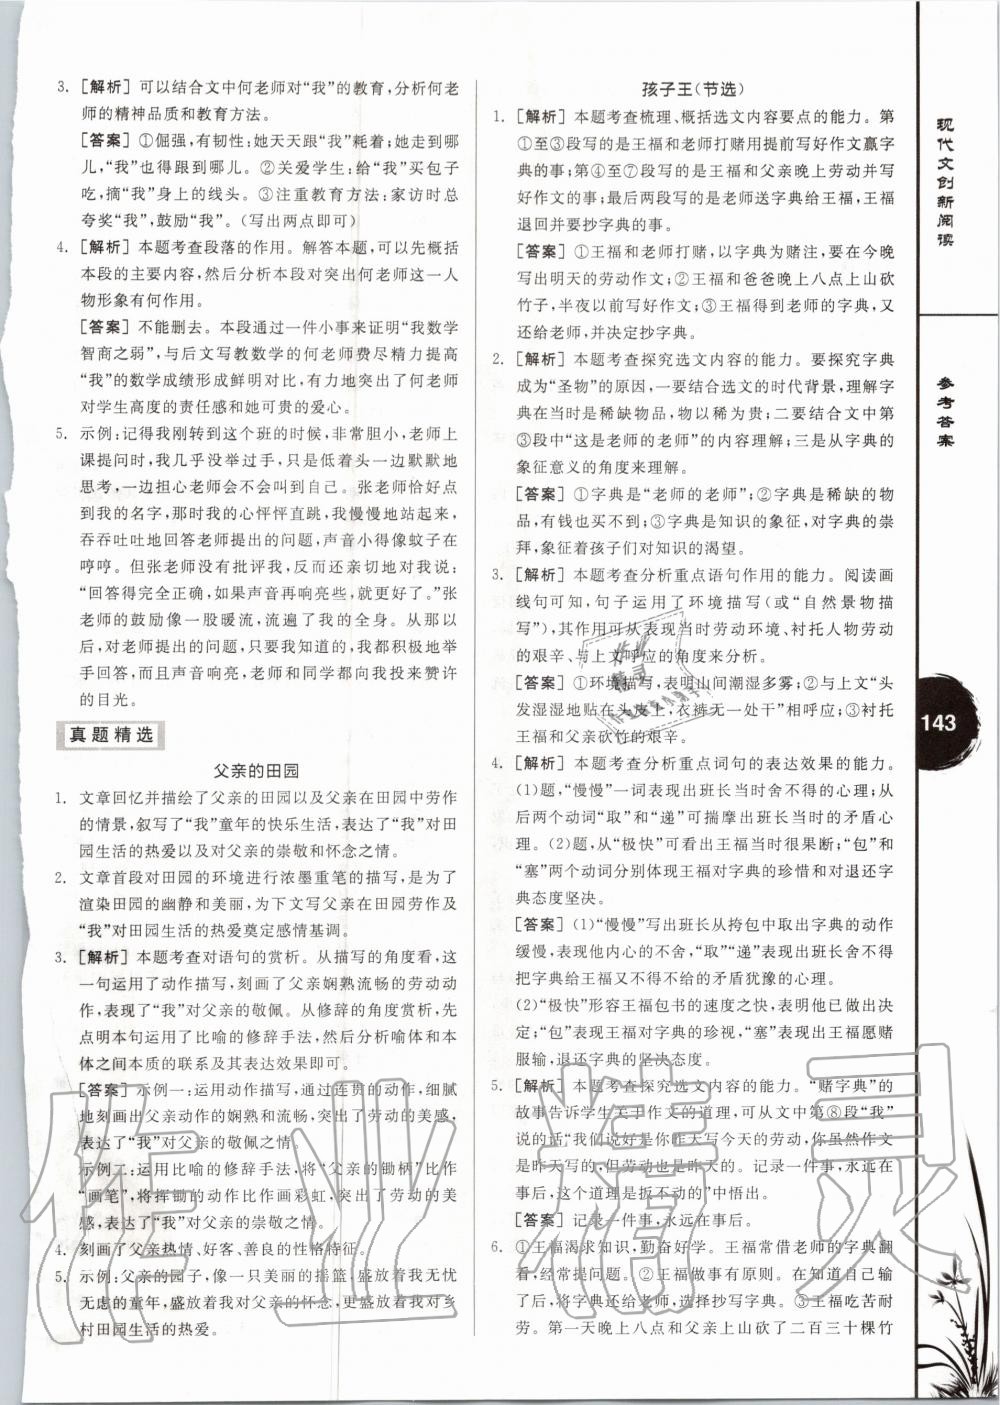 3. [解析] 可以结合文中何老师对“我”的教育,分析何老
师的精神品质和教育方法。
[答案] ①倔强,有韧性;她天天跟“我”耗着;她走到哪
儿,“我”也得跟到哪儿。②关爱学生:给“我”买包子
吃,摘“我”身上的线头。③注重教育方法:家访时总
夸奖“我”,鼓励“我”。(写出两点即可)
4. [解析] 本题考查段落的作用。解答本题,可以先概括
本段的主要内容,然后分析本段对突出何老师这一人
物形象有何作用。
[答案] 不能删去。本段通过一件小事来证明“我数学
智商之弱”,与后文写教数学的何老师费尽精力提高了
“我”的数学成绩形成鲜明对比,有力地突出了何老师
对学生高度的责任感和她可贵的爱心。
5. 示例:记得我刚转到这个班的时候,非常胆小,老师上
课提问时,我几乎没举过手,只是低着头一边默默地
思考,一边担心老师会不会叫到自己。张老师恰好点
到我的名字,那时我的心怦怦直跳,我慢慢地站起来,
吞吞吐吐地回答老师提出的问题,声音小得像蚊子在
哼哼。但张老师没有批评我,反而还亲切地对我说:
“回答得完全正确,如果声音再响亮些,就更好了。”张
老师的鼓励像一股暖流,流遍了我的全身。从那以
后,对老师提出的问题,只要我知道的,我都积极地举
手回答,而且声音响亮,老师和同学都向我投来赞许
的目光。
真题精选
父亲的田园
1. 文章回忆并描绘了父亲的田园以及父亲在田园中劳作
的情景,叙写了“我”童年的快乐生活,表达了“我”对田
园生活的热爱以及对父亲的崇敬和怀念之情。
2. 文章首段对田园的环境进行浓墨重笔的描写,是为了
渲染田园的幽静和美丽,为下文写父亲在田园劳作及
“我”对田园生活的热爱奠定感情基调。
3. [解析] 本题考查对语句的赏析。从描写的角度看,这
一句运用了动作描写,刻画了父亲娴熟流畅的劳动动
作,表现了“我”对父亲的敬佩。从修辞的角度赏析,先
点明本句运用了比喻的修辞手法,然后分析喻体和本
体之间本质的联系及其表达效果即可。
[答案] 示例一:运用动作描写,通过连贯的动作,细腻
地刻画出父亲动作的娴熟和流畅,突出了劳动的美感,
表现了“我”对父亲的敬佩之情。
示例二:运用比喻的修辞手法,将“父亲的锄柄”比作
“画笔”,将挥锄的动作比作画彩虹,突出了劳动的美
感,表达了“我”对父亲的崇敬之情。
4. 刻画了父亲热情、好客、善良的性格特征。
5. 示例:父亲的园子,像一只美丽的摇篮,盛放着我无忧
无虑的童年,盛放着我对父亲的怀念,更盛放着我对乡
村田园生活的热爱。
孩子王(节选)
1. [解析] 本题考查梳理、概括选文内容要点的能力。第
①至③段写的是王福和老师打赌用提前写好作文赢字
典的事情;第④至⑦段写的是王福和父亲晚上劳动并写
好作文的事情;最后两段写的是老师送字典给王福,王福
退回并要抄字典的事。
[答案] ①王福和老师打赌,以字典为赌注,要在今晚
写出明天的劳动作文;②王福和爸爸晚上八点上山砍
竹子,半夜以前写好作文;③王福得到老师的字典,又
还给老师,并决定抄字典。
2. [解析] 本题考查探究选文内容的能力。要探究字典
成为“圣物”的原因,一要结合选文的时代背景,理解字
典在当时是稀缺物品,物以稀为贵;二要结合文中第
③段中“这是老师的老师”的内容理解;三是从字典的
象征意义的角度来理解。
[答案] ①字典是“老师的老师”;②字典是稀缺的物品,
有钱也买不到;③字典是知识的象征,对字典的崇
拜,象征着孩子们对知识的渴望。
3. [解析] 本题考查分析重点语句作用的能力。阅读画
线句可知,句子运用了环境描写(或“自然景物描
写”),其作用可从表现当时劳动环境、衬托人物劳动
的艰辛、与上文呼应的角度来分析。
[答案] ①环境描写,表明山间潮湿多雾;②与上文“头
发湿湿地贴在头皮上,衣裤无一处干”相呼应;③衬托
王福和父亲砍竹的艰辛。
4. [解析] 本题考查分析重点词句的表达效果的能力。
(1)题,“慢慢”一词表现出班长当时舍不得的心理;从
后两个动词“取”和“递”可揣摩出班长当时的矛盾心
理。(2)题,从“极快”可看出王福当时很果断;“包”和
“塞”两个动词分别体现王福对字典的珍惜和对退还字
典态度坚决。
[答案] (1)“慢慢”写出班长从挎包中取出字典的动作
缓慢,表现他内心的不舍,“取”“递”表现出班长不得不
把字典给王福又不得不给的矛盾犹豫的心理。
(2)“极快”形容王福包书的速度之快,表现出他的决
定;“包”表现王福对字典的珍视,“塞”表现出王福愿赌
服输,退还字典的坚决态度。
5. [解析] 本题考查探究选文内容的能力。“赌字典”的
故事告诉学生关于作文的道理,可从文中第⑧段“我”
说的话“我们说好是昨天写今天的劳动,你虽然作文
是昨天写的,但劳动也是昨天的。记录一件事,永远在
事后,这个道理是扳不动的”中悟出。
[答案] 记录一件事,永远在事后。
6. ①王福渴求知识,勤奋好学。王福常借老师的字典翻
看,经常提问题。②王福做事有原则。在打赌输了之
后,将字典还给老师,选择抄写字典。③王福吃苦耐
劳。第一天晚上八点和父亲上山砍了二百三十棵竹
现代文创新阅读
参考答案
143
作业精灵